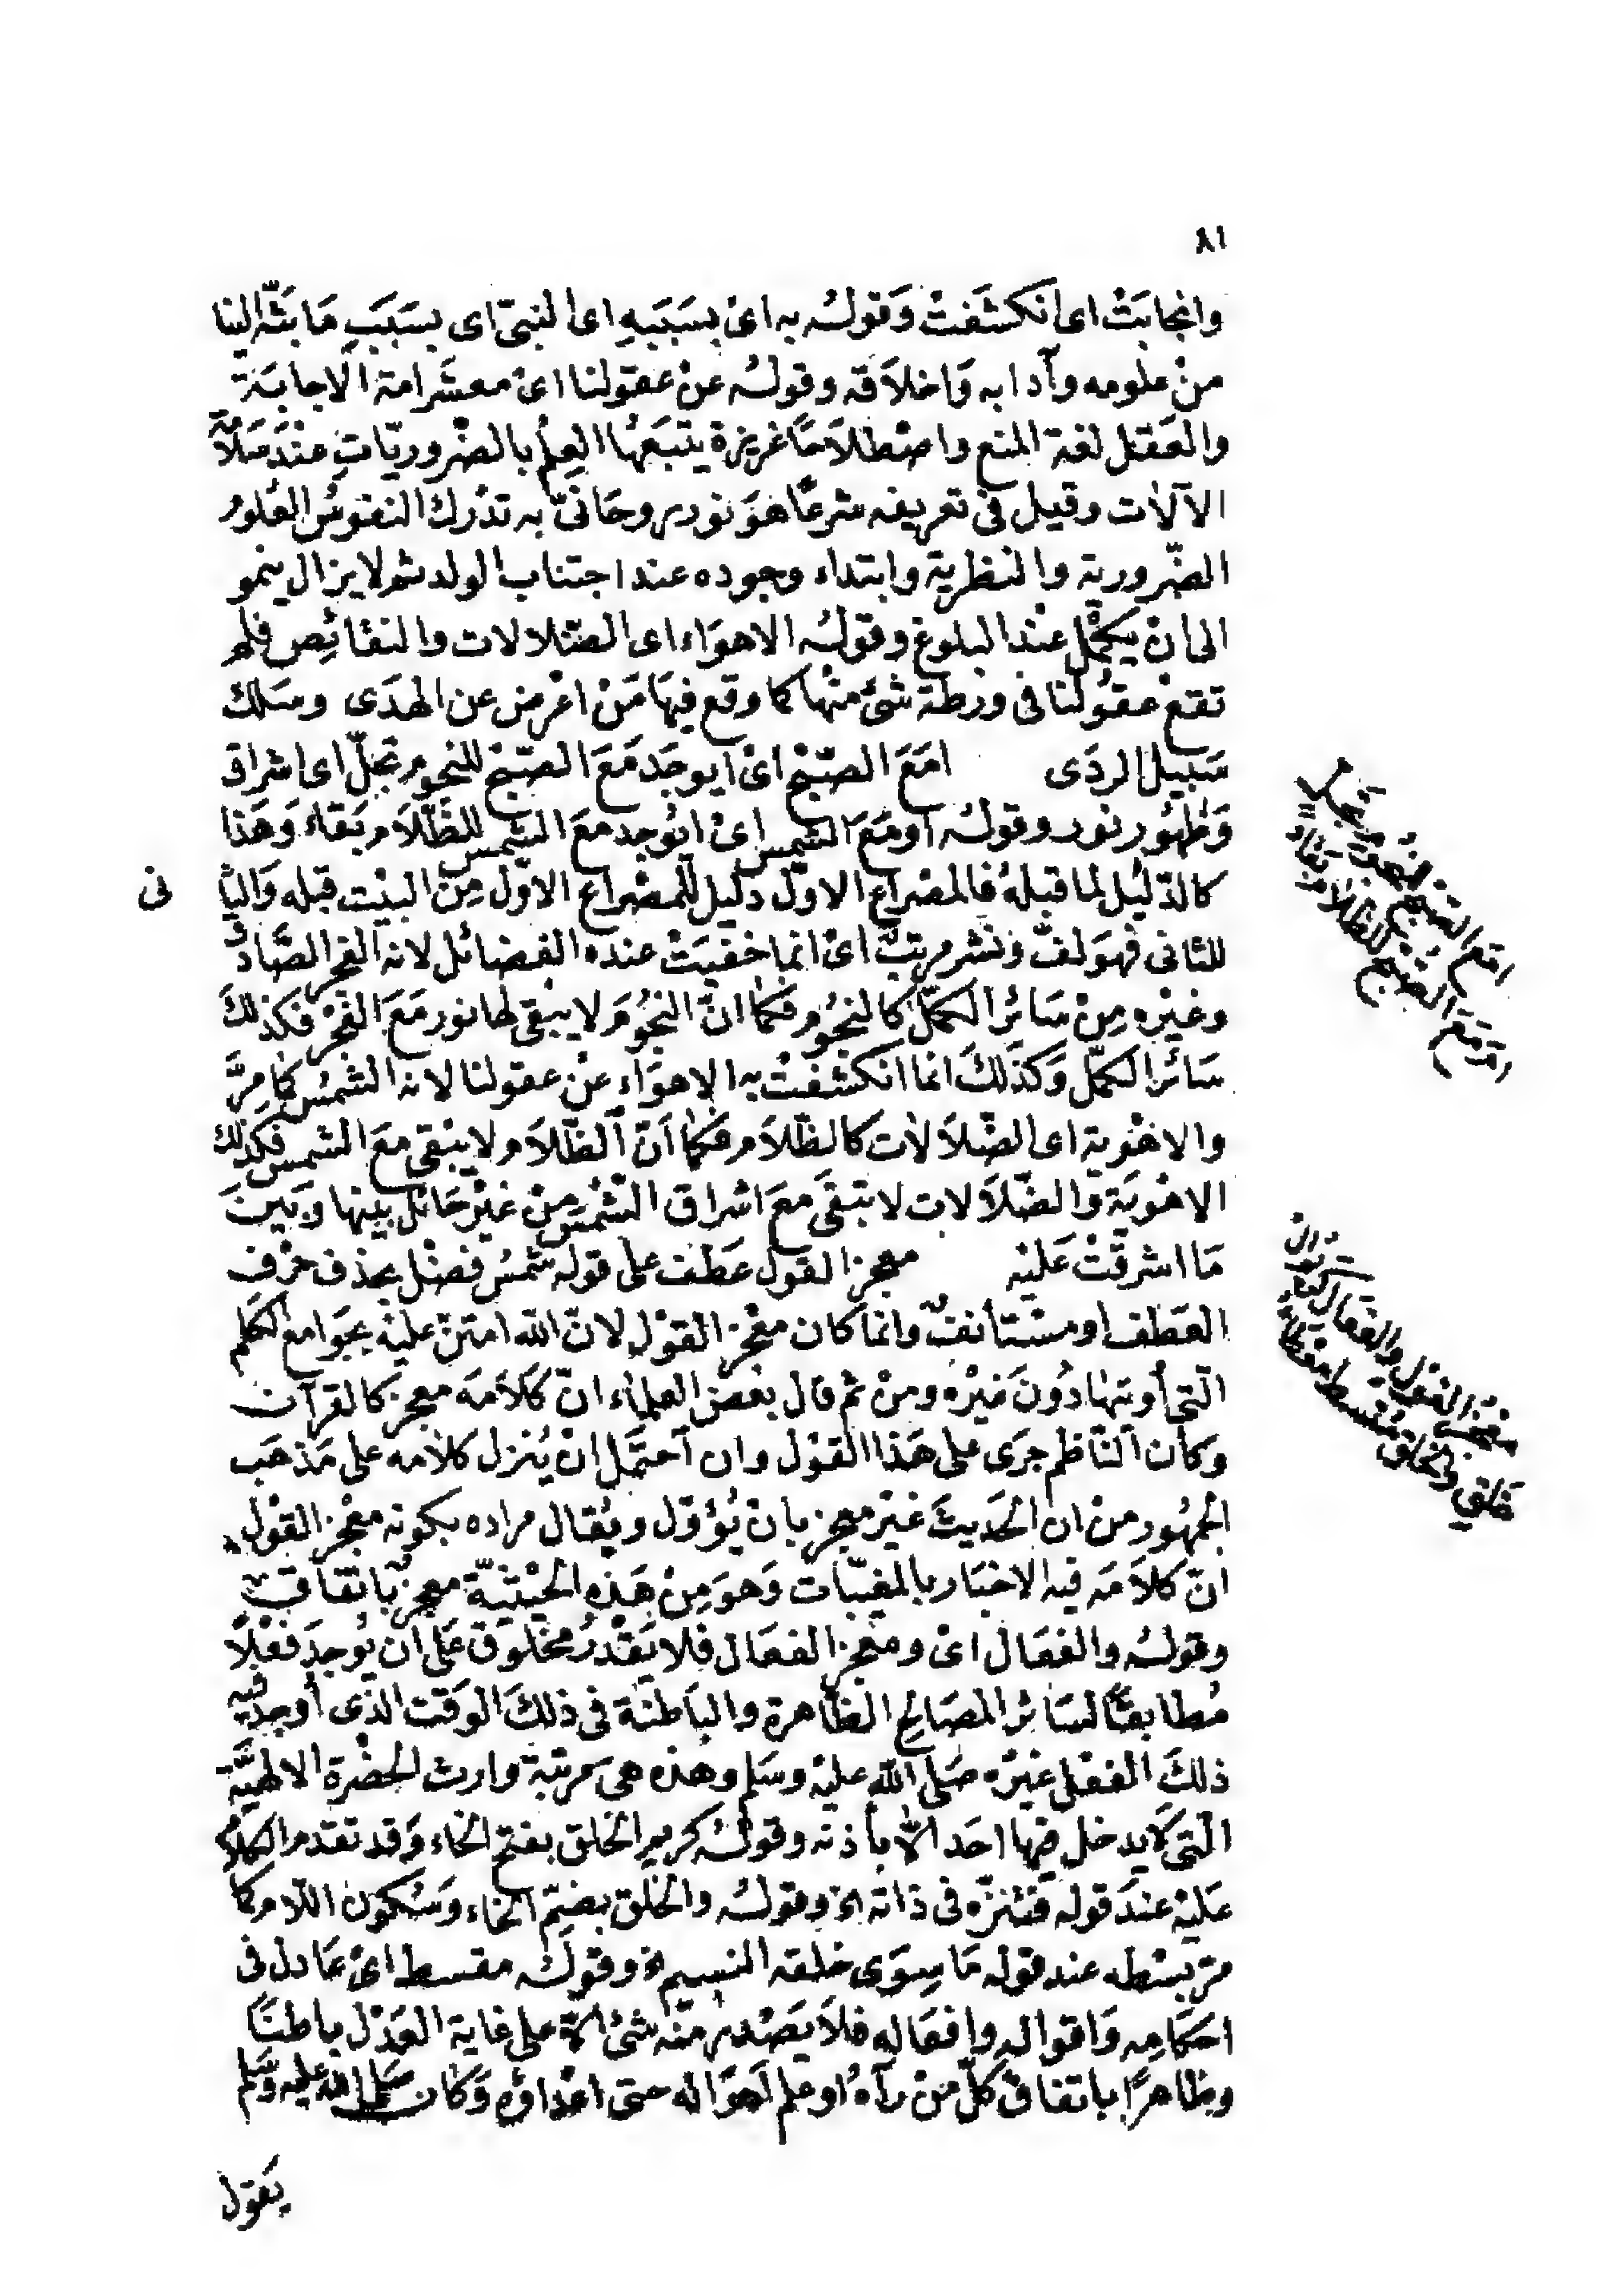 ٨١
وانجابَتْ اى انكشَفتْ وَقولهُ به اىْ بسَبَبهِ اى النبىّ اى بسَبَبِ مَا بثّه الينا
منْ علومه وآدابه وَاخلاَقه وقولهُ عنْ عقولنا اىْ معشَر امة الاجابَة
والعَقل لغة المنع واصْطلاَحًا غريزة يتبَعُها العِلْم بالضرُوريّات عنْدَ سَلاَمة
الآلات وقيل فى تعريفه شرعًا هوَ نور روحَانىّ به تدْرك النفوسُ العُلومُ
الضّرورية والنظرية وابتداء وجوده عند اجتناب الولد ثم لايزال ينمو
الى انْ يكمُل عنْد البلوغ وقولهُ الاهوَاء اى الضّلالات والنقَائِص فلم
تقعْ عقوُلنا فى ورطة شئ منْها كما وقع فيهَا مَنْ اعْرض عن الهدَى وسَلك
سَبيل الردَى امَعَ الصّبْح اىْ ايوجَد مَعَ الصّبْح للنجوم تجَلّ اى اشراق
وَظهُور نور وقولهُ او مَعَ الشمس اىْ ايُوجد معَ الشمس للظّلاَم بَقاء وَهَذا
كالدّليْل لما قبلهُ فالمصْراع الاوّل دليْل للمصْراع الاوّل مِنَ البيْت قبله وَالثا
نى
للثانى فهوَ لفّ ونشر مرتبٌ اىْ انما خفيَتْ عنده الفضائل لانه الفجر الصَّادق
وغيْره مِنْ سَائر الكمّل كالنجُوم فكما انّ النجُومَ لايبْقى لها نور مَعَ الفجْر فكذلكَ
سَائر الكمّل وَكذَلكَ انما انكشفتْ به الاهوَاء عنْ عقولنا لانه الشمسُ كما مرَّ
والاهْوية اى الضّلاَلات كالظّلاَم فكما اَنّ الظّلاَم لايبْقى معَ الشمس فكذلك
الاهْويَة وَالضّلاَلات لا تبقَى معَ اشراق الشمْس منْ غيْر حَائل بيْنها وَبَينَ
مَا اشرقتْ عَليْه معجز القول عَطف على قوله شمسُ فضْل بحذف حَرْف
العَطف او مسْتأنفٌ وانما كان معْجز القوْل لانّ الله امتنّ عليْه بجَوامع الكلم
الّتى أوتيَها دُونَ غيْره ومنْ ثم قال بعْضُ العلماء انّ كَلاَمَهُ معجز كالقرآن
وَكأن النّاظم جرَى على هَذا القوْل وان اَحتمَل انْ يُنزل كلامه على مَذهَب
الجمهُور منْ ان الحَديثَ غيْر معجز بانْ يُؤوّل ويُقال مراده بكونه معْجز القوْل
انّ كلاَمَه فيه الاخبَار بالمغيّبات وَهوَ مِنْ هَذِهِ الحيْثيَّة معجزٌ باتفَاق
وقولهُ والفعَال اىْ ومعْجز الفعَال فلا يَقْدرُ مخلُوق عَلَى انْ يُوجدَ فعْلاً
مُطابقًا لسَائر المصَالح الظّاهرة والبَاطنَة فى ذلكَ الوَقت الذى أوجد فيه
ذلكَ الفعْل غيْره صَلى الله عليْه وسَلم وهذه هى مرتبَة وارث الحضْرة الالهيَّة
الّتى لاَ يدخل فيها احَد الاّ بأذنه وقولهُ كريم الخلق بفتح الخاء وَقد تقدم الكلاَم
عَليْه عندَ قوله فتنزّه فى ذاته الخ وقولهُ والخلق بضمّ الخاء وَسُكون اللام كما
مرّ بسْطه عند قوله مَا سِوَى خلقه النسيم الخ وقولهُ مقسط اىْ عَادل فى
احكامه وَاقواله وافعَاله فلاَ يَصْدر منه شئ الاّ على غاية العَدْل باطنًا
وظاهرًا باتفاق كلّ منْ رآهُ او علم اَحوَاله حتى اعْداؤه وَكان صَلى الله عليه وَسَلم
يَقوْل
امَع الصّبْح للنجُوم تجَلّ
اَمْ مَعَ الصّبْح للظّلام بقَاءُ
معْجز القوْل والفعَال كريم الـ
خلق والخلق مُقسط معْطَاء